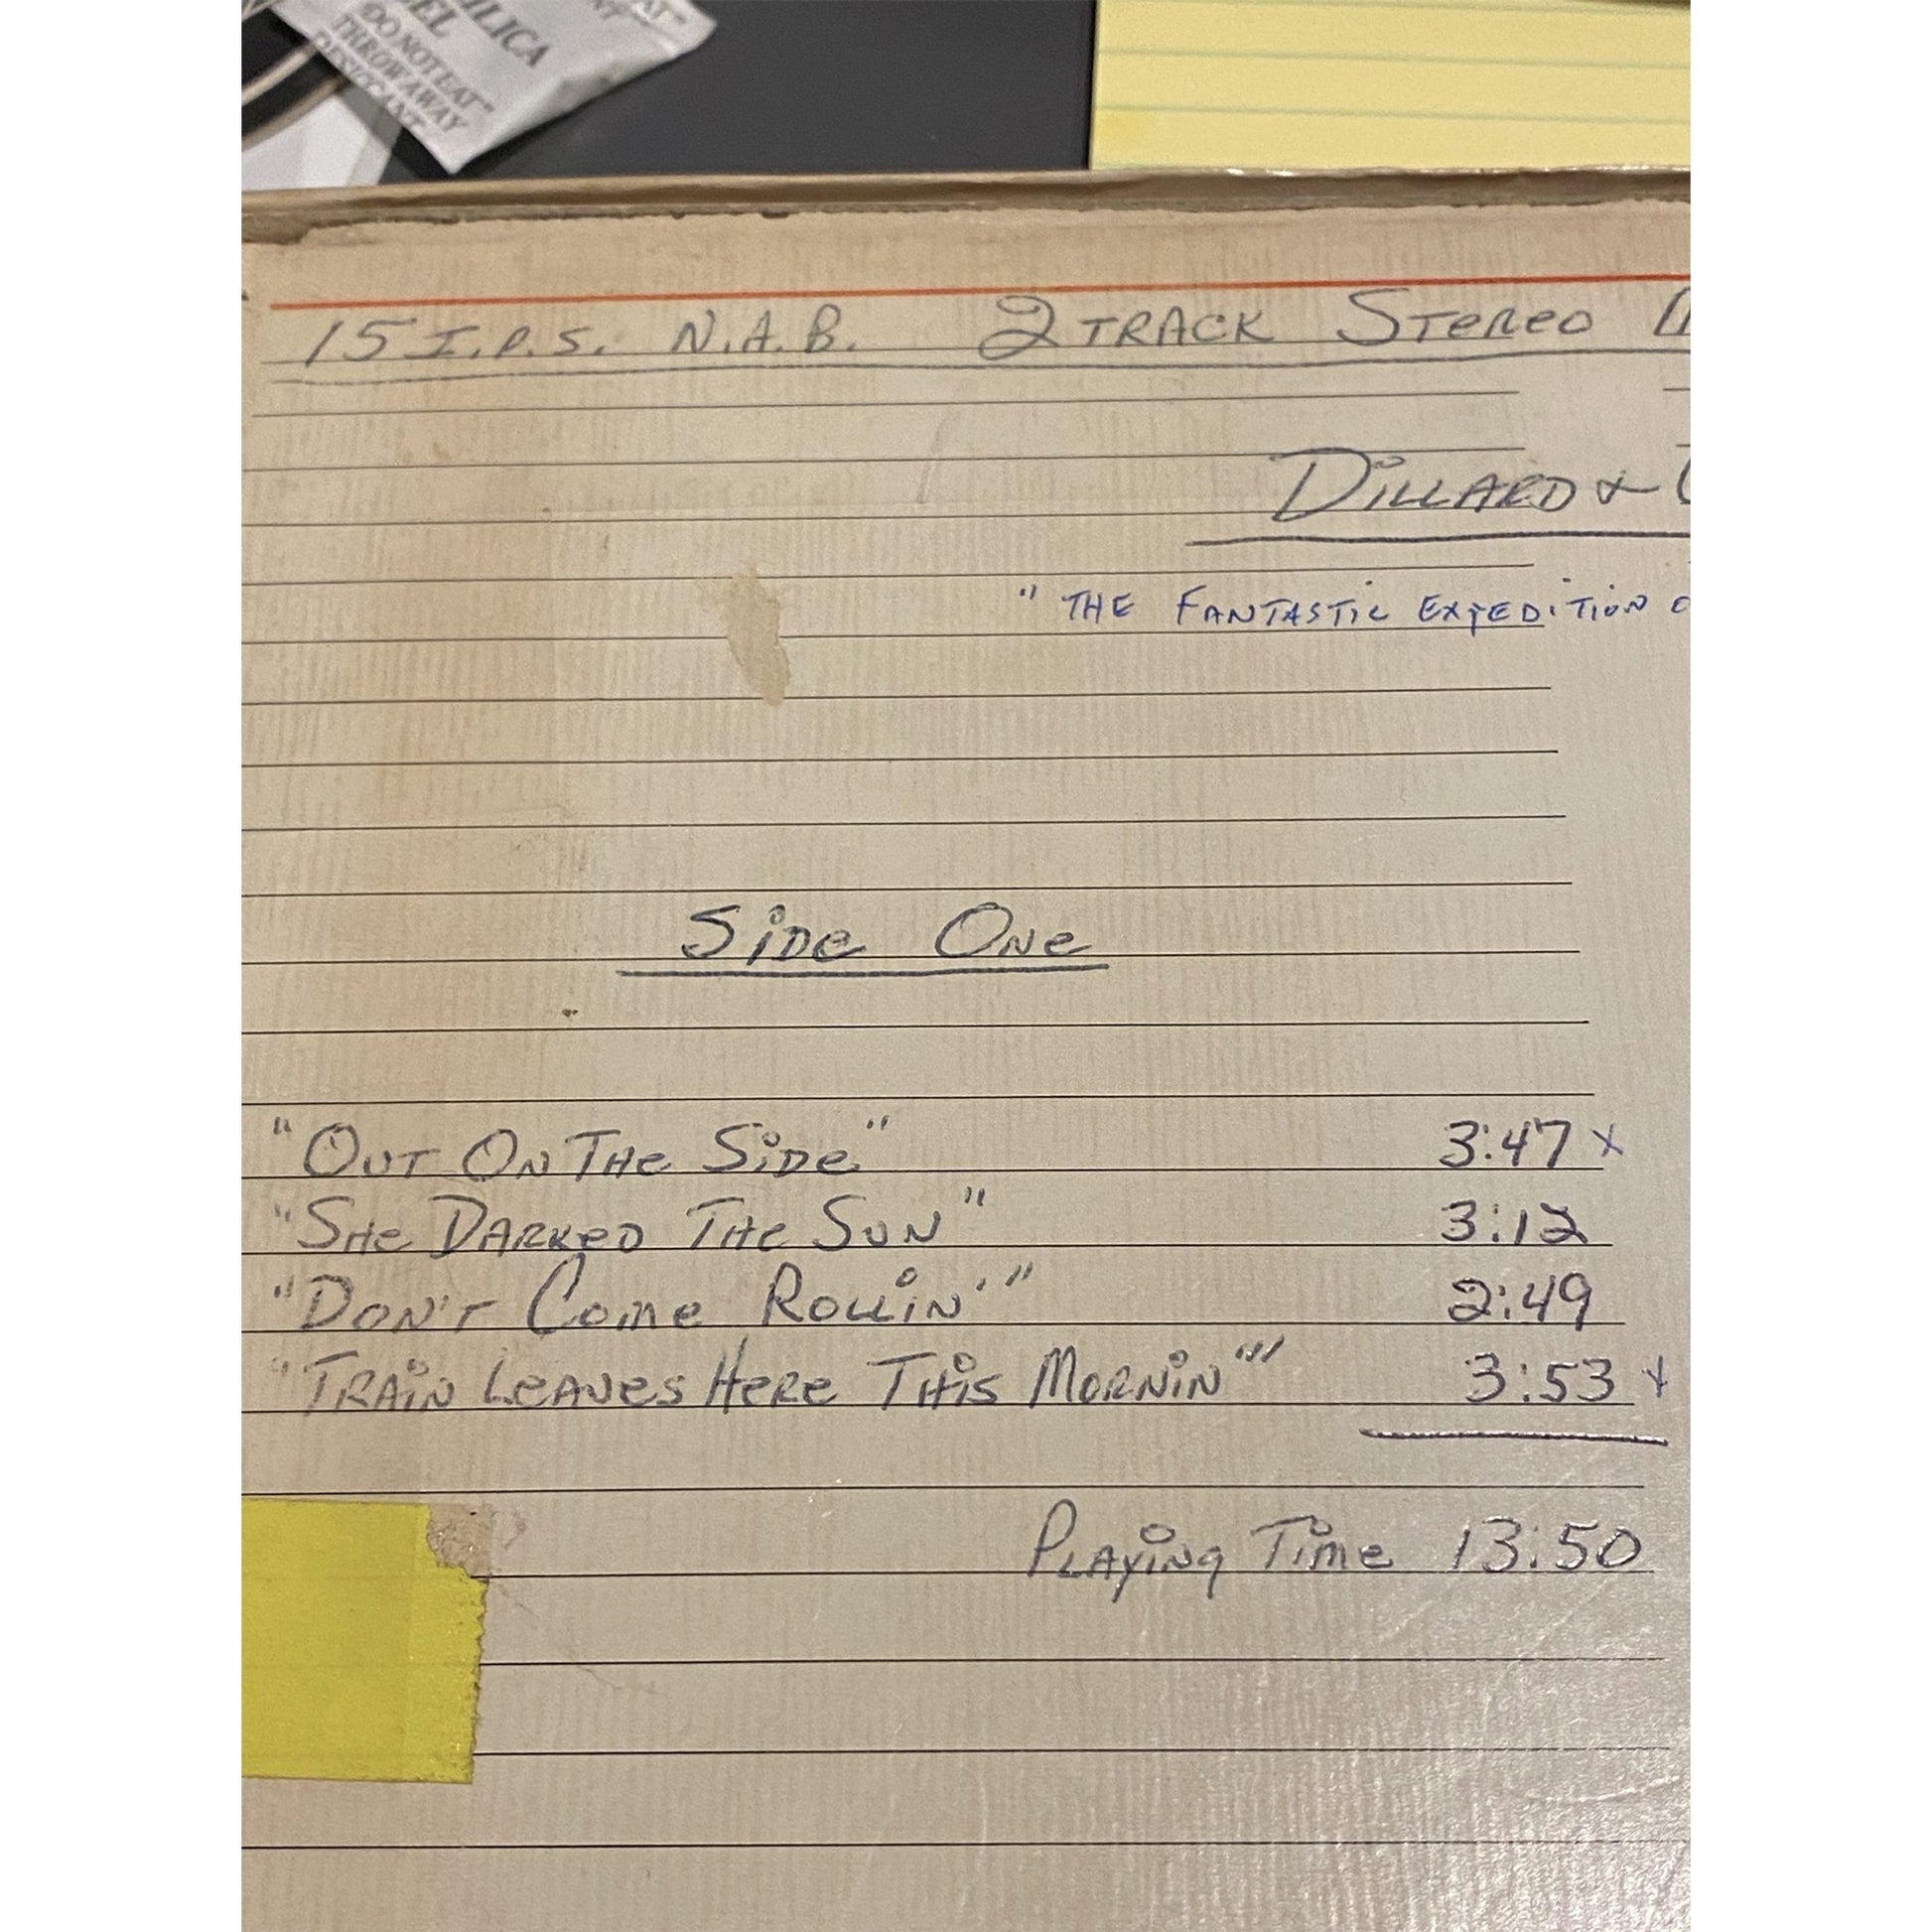 SILICA
GEL
"DO NOT EAT"
THROW AWAY
DESICCANT
15 I.P.S. N.A.B. 2 TRACK STEREO
DILLARD &
" THE FANTASTIC EXPEDITION
SIDE ONE
"OUT ON THE SIDE" 3:47 x
"SHE DARKED THE SUN" 3:12
"DON'T COME ROLLIN'" 2:49
"TRAIN LEAVES HERE THIS MORNIN'" 3:53 x
PLAYING TIME 13:50